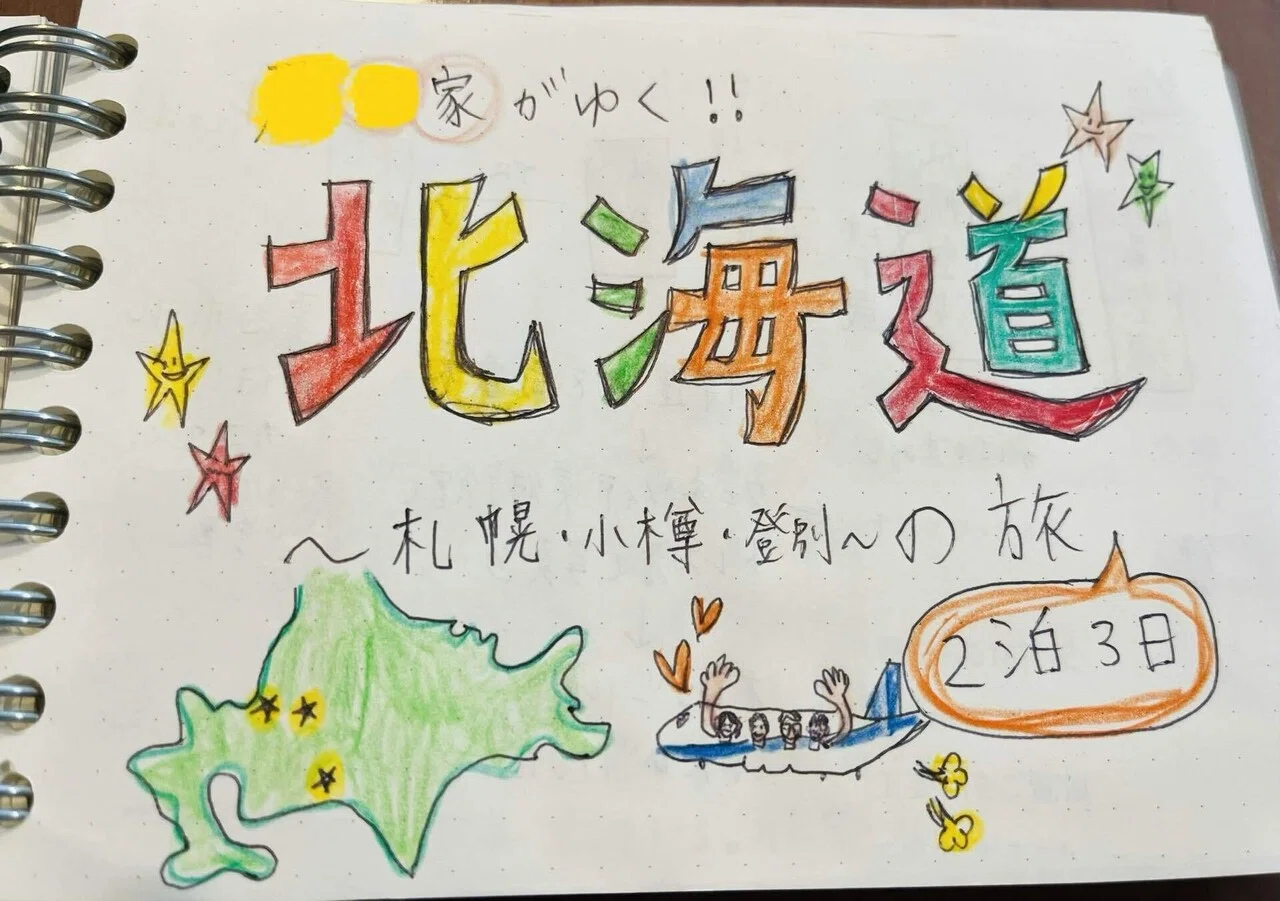 家がゆく!!
北海道
〜札幌・小樽・登別〜の旅
2泊3日